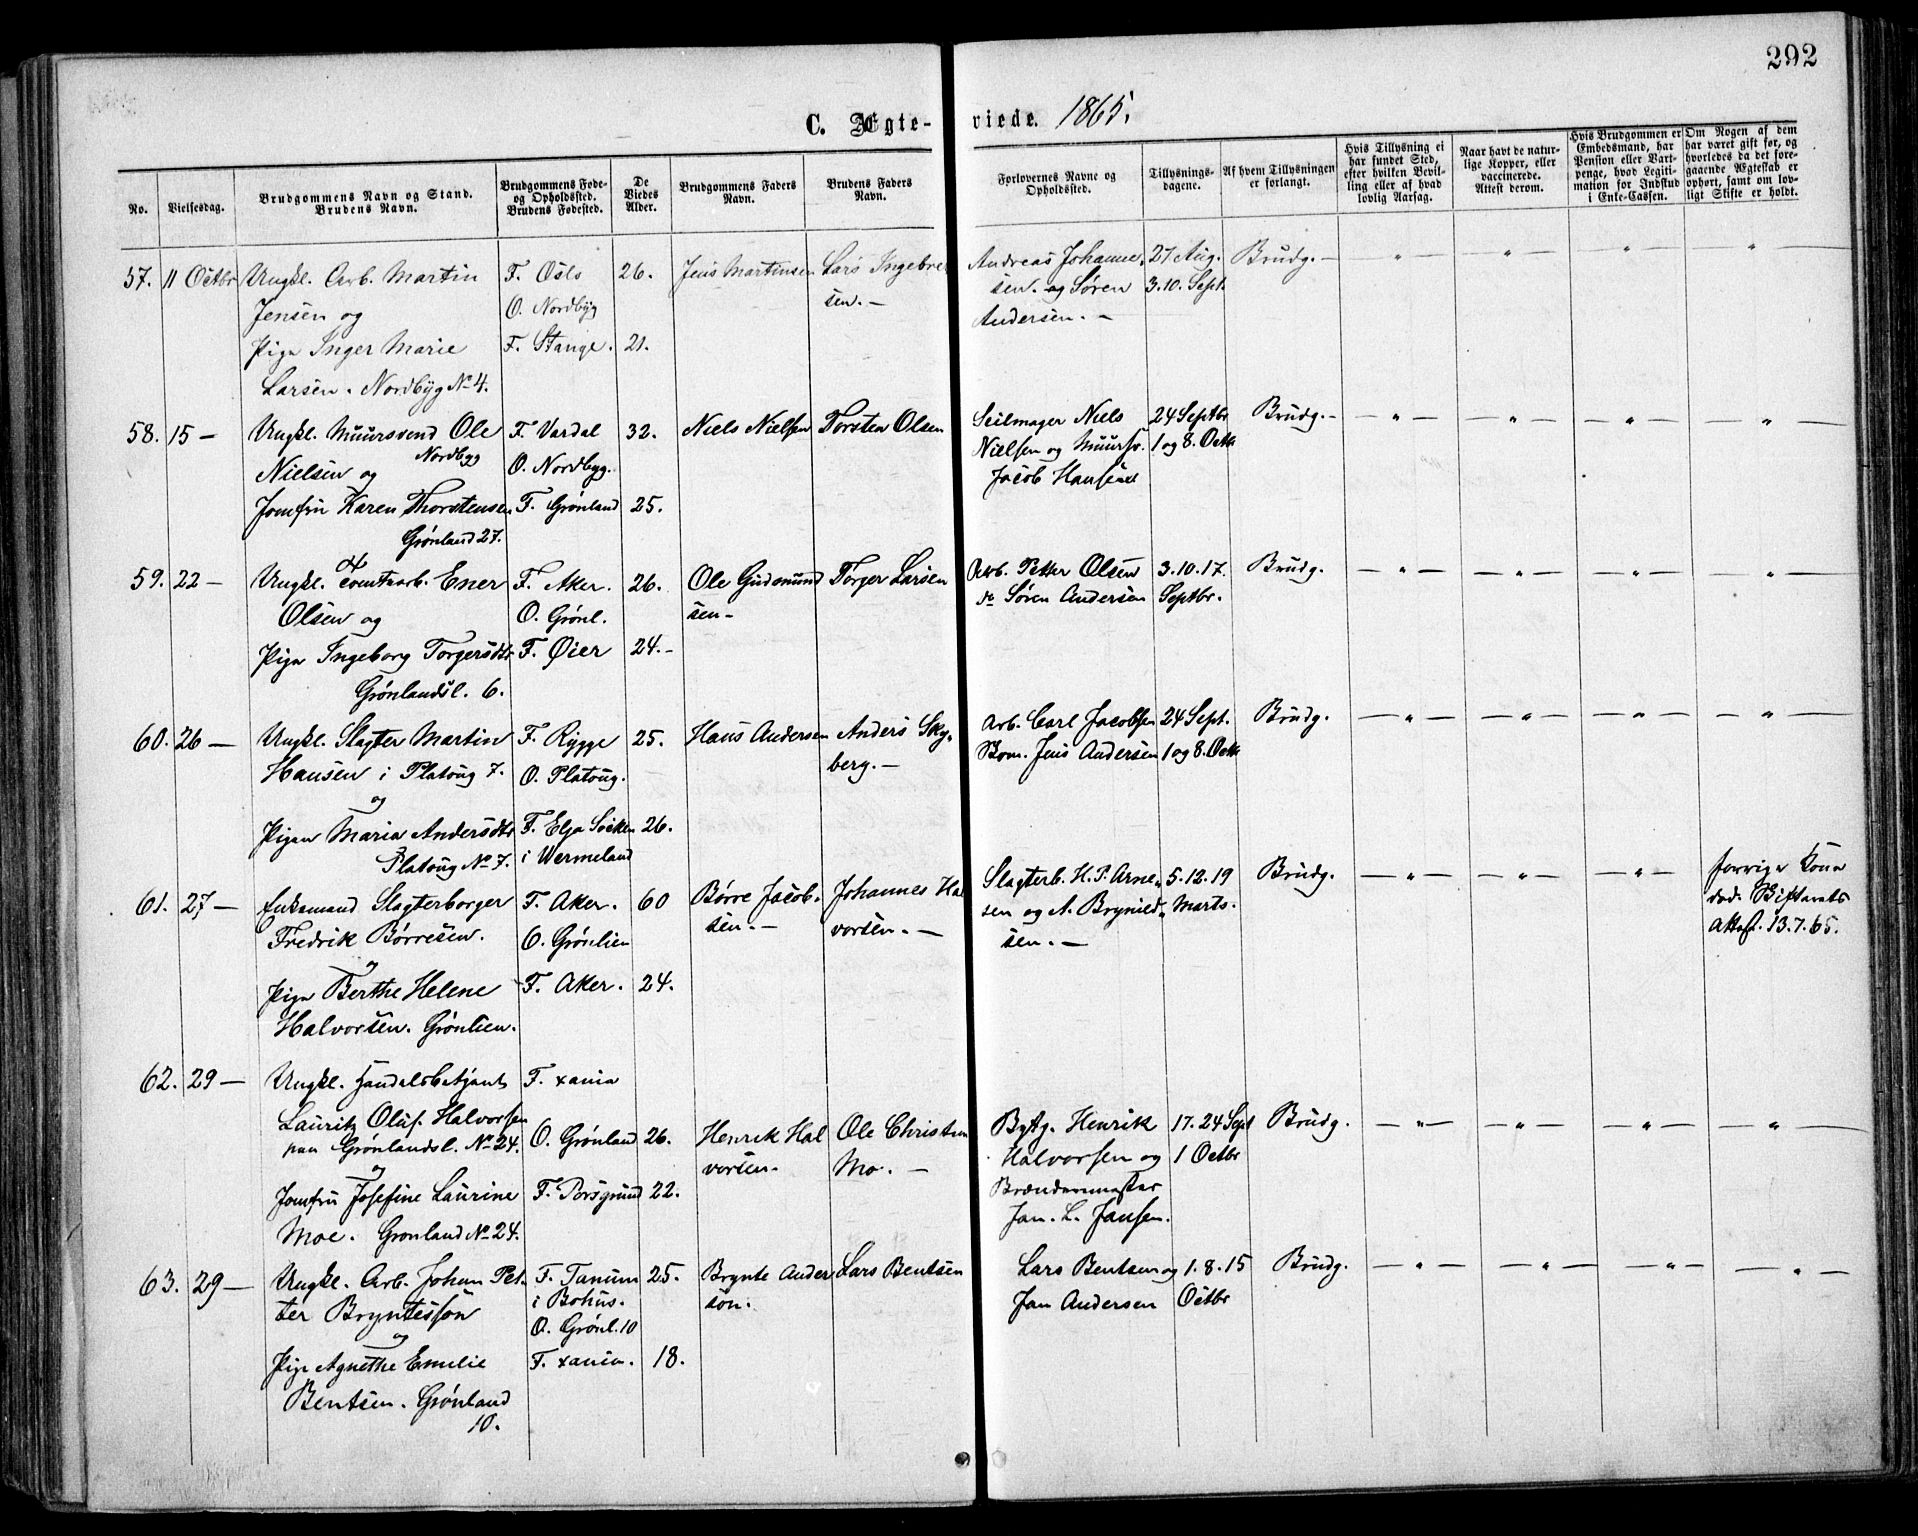 292
C. Ægte-
viede. 1865.
No.
Vielsesdag.
Brudgommens Navn og Stand.
Brudens Navn.
Brudgommens Føde-
og Opholdssted.
Brudens Fødested.
De
Viedes
Alder.
Brudgommens Faders
Navn.
Brudens Faders
Navn.
Forlovernes Navne og
Opholdssted.
Tillysnings-
dagene.
Af hvem Tillysningen
er forlangt.
Hvis Tillysning ei
har fundet Sted,
efter hvilken Bevil-
ling eller af hvad
lovlig Aarsag.
Naar havt de natur-
lige Kopper, eller
vaccinerede.
Attest derom.
Hvis Brudgommen er
Embedsmand, har
Pension eller Vart-
penge, hvad Legiti-
mation for Indskud
i Enke-Cassen.
Om Nogen af dem
har været gift før, og
hvorledes da det fore-
gaaende Ægteskab er
ophørt, samt om lov-
ligt Skifte er holdt.
57. 11 Octbr Ungkl. Arb. Martin F. Oslo 26. Jens Martinsen Lars Ingebret Andreas Johanne- 27 Aug. Brudg. — " — " — " — "
Jensen og O. Nordbyg sen. — sen. og Søren 3.10. Sept.
Andersen. —
Pige Inger Marie F. Stange. 21.
Larsen. Nordbyg No 4.
58. 15 — Ungkl. Muursvend Ole F. Vardal 32. Niels Nielsen Torsten Olsen Seilmager Niels 24 Septbr Brudg. — " — " — " — "
Nordbyg
Nielsen og O. Nordbyg. Nielsen og Muursv. 1 og 8. Octb
Jacob Hansen
Jomfru Karen Thorstensen F. Grønland 25.
Grønland 27.
59. 22 — Ungkl. Tomtearb. Ener F. Aker. 26. Ole Gudmund Torger Larsen Arb. Petter Olsen 3.10.17. Brudg. — " — " — " — "
Olsen og O. Grønl. sen — do Søren Andersen Septbr.
Pige Ingeborg Torgersdtr F. Øier 24. —
Grønlandsl. 6.
60. 26 — Ungkl. Slagter Martin F. Rygge 25. Hans Andersen Anders Sky- Arb. Carl Jacobsen 24 Sept. Brudg. — " — " — " — "
Hansen i Platoug 7. O. Platoug. berg. — Jens Andersen 1 og 8. Octb
og
Pigen Maria Andersdtr F. Elga Socken 26.
Platoug No 7. i Wermeland
61. 27 — Enkemand Slagterborger F. Aker. 60 Børre Jacob- Johannes Hal Slagterb. H. P. Arne- 5.12.19 Brudg. — " — " — " forrige Kone
Fredrik Børresen. O. Grønlien sen. — vorsen. — sen og A. Brynild- Marts. død. Skifterets
og sen. — Attest. 13.7.65.
Pige Berthe Helene F. Aker. 24.
Halvorsen. Grønlien.
62. 29 — Ungkl. Handelsbetjent F. xania
Lauritz Oluf Halvorsen Bytg. Henrik 17.24 Sept Brudg. — " — " — " — "
paa Grønlandsl. No 24. O. Grønland 26. Henrik Hal Ole Christian Halvorsen og 1 Octbr
og vorsen. Mo. — Brændevinmester
Jomfru Josefine Laurine F. Porsgrund 22. Jan. L. Jansen.
Moe. Grønland No 24.
63. 29 — Ungkl. Arb. Johan Pet- F. Tanum 25. Brynte Ander Lars Bentsen Lars Bentsen og 1.8.15 Brudg. — " — " — " — "
ter Bryntesson i Bohus. son. Jan Andersen Octbr
og O. Grønl. 10
Pige Agnethe Emilie F. xania. 18.
Bentsen. Grønland
10.